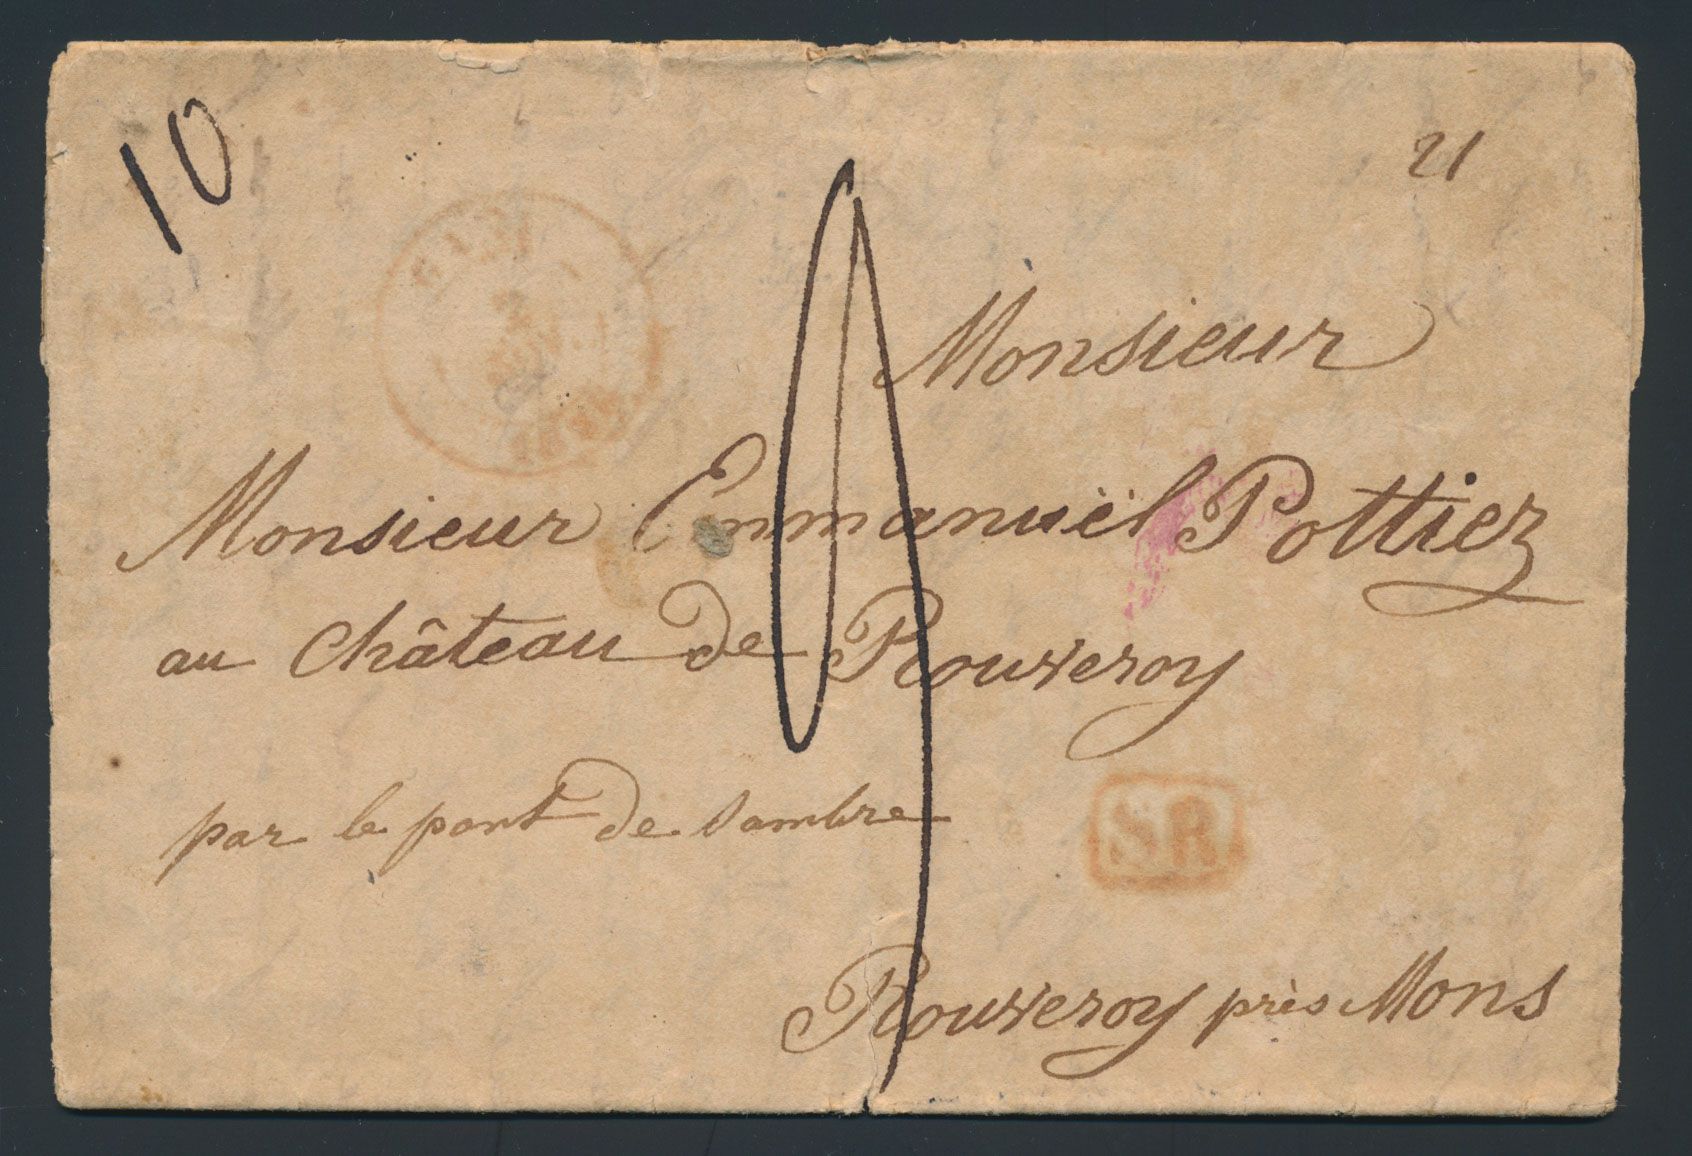 10
21
Monsieur
Monsieur Emmanuël Pottiez
au Château de Rouveroy
par le pont de Sambre
SR
Rouveroy près Mons